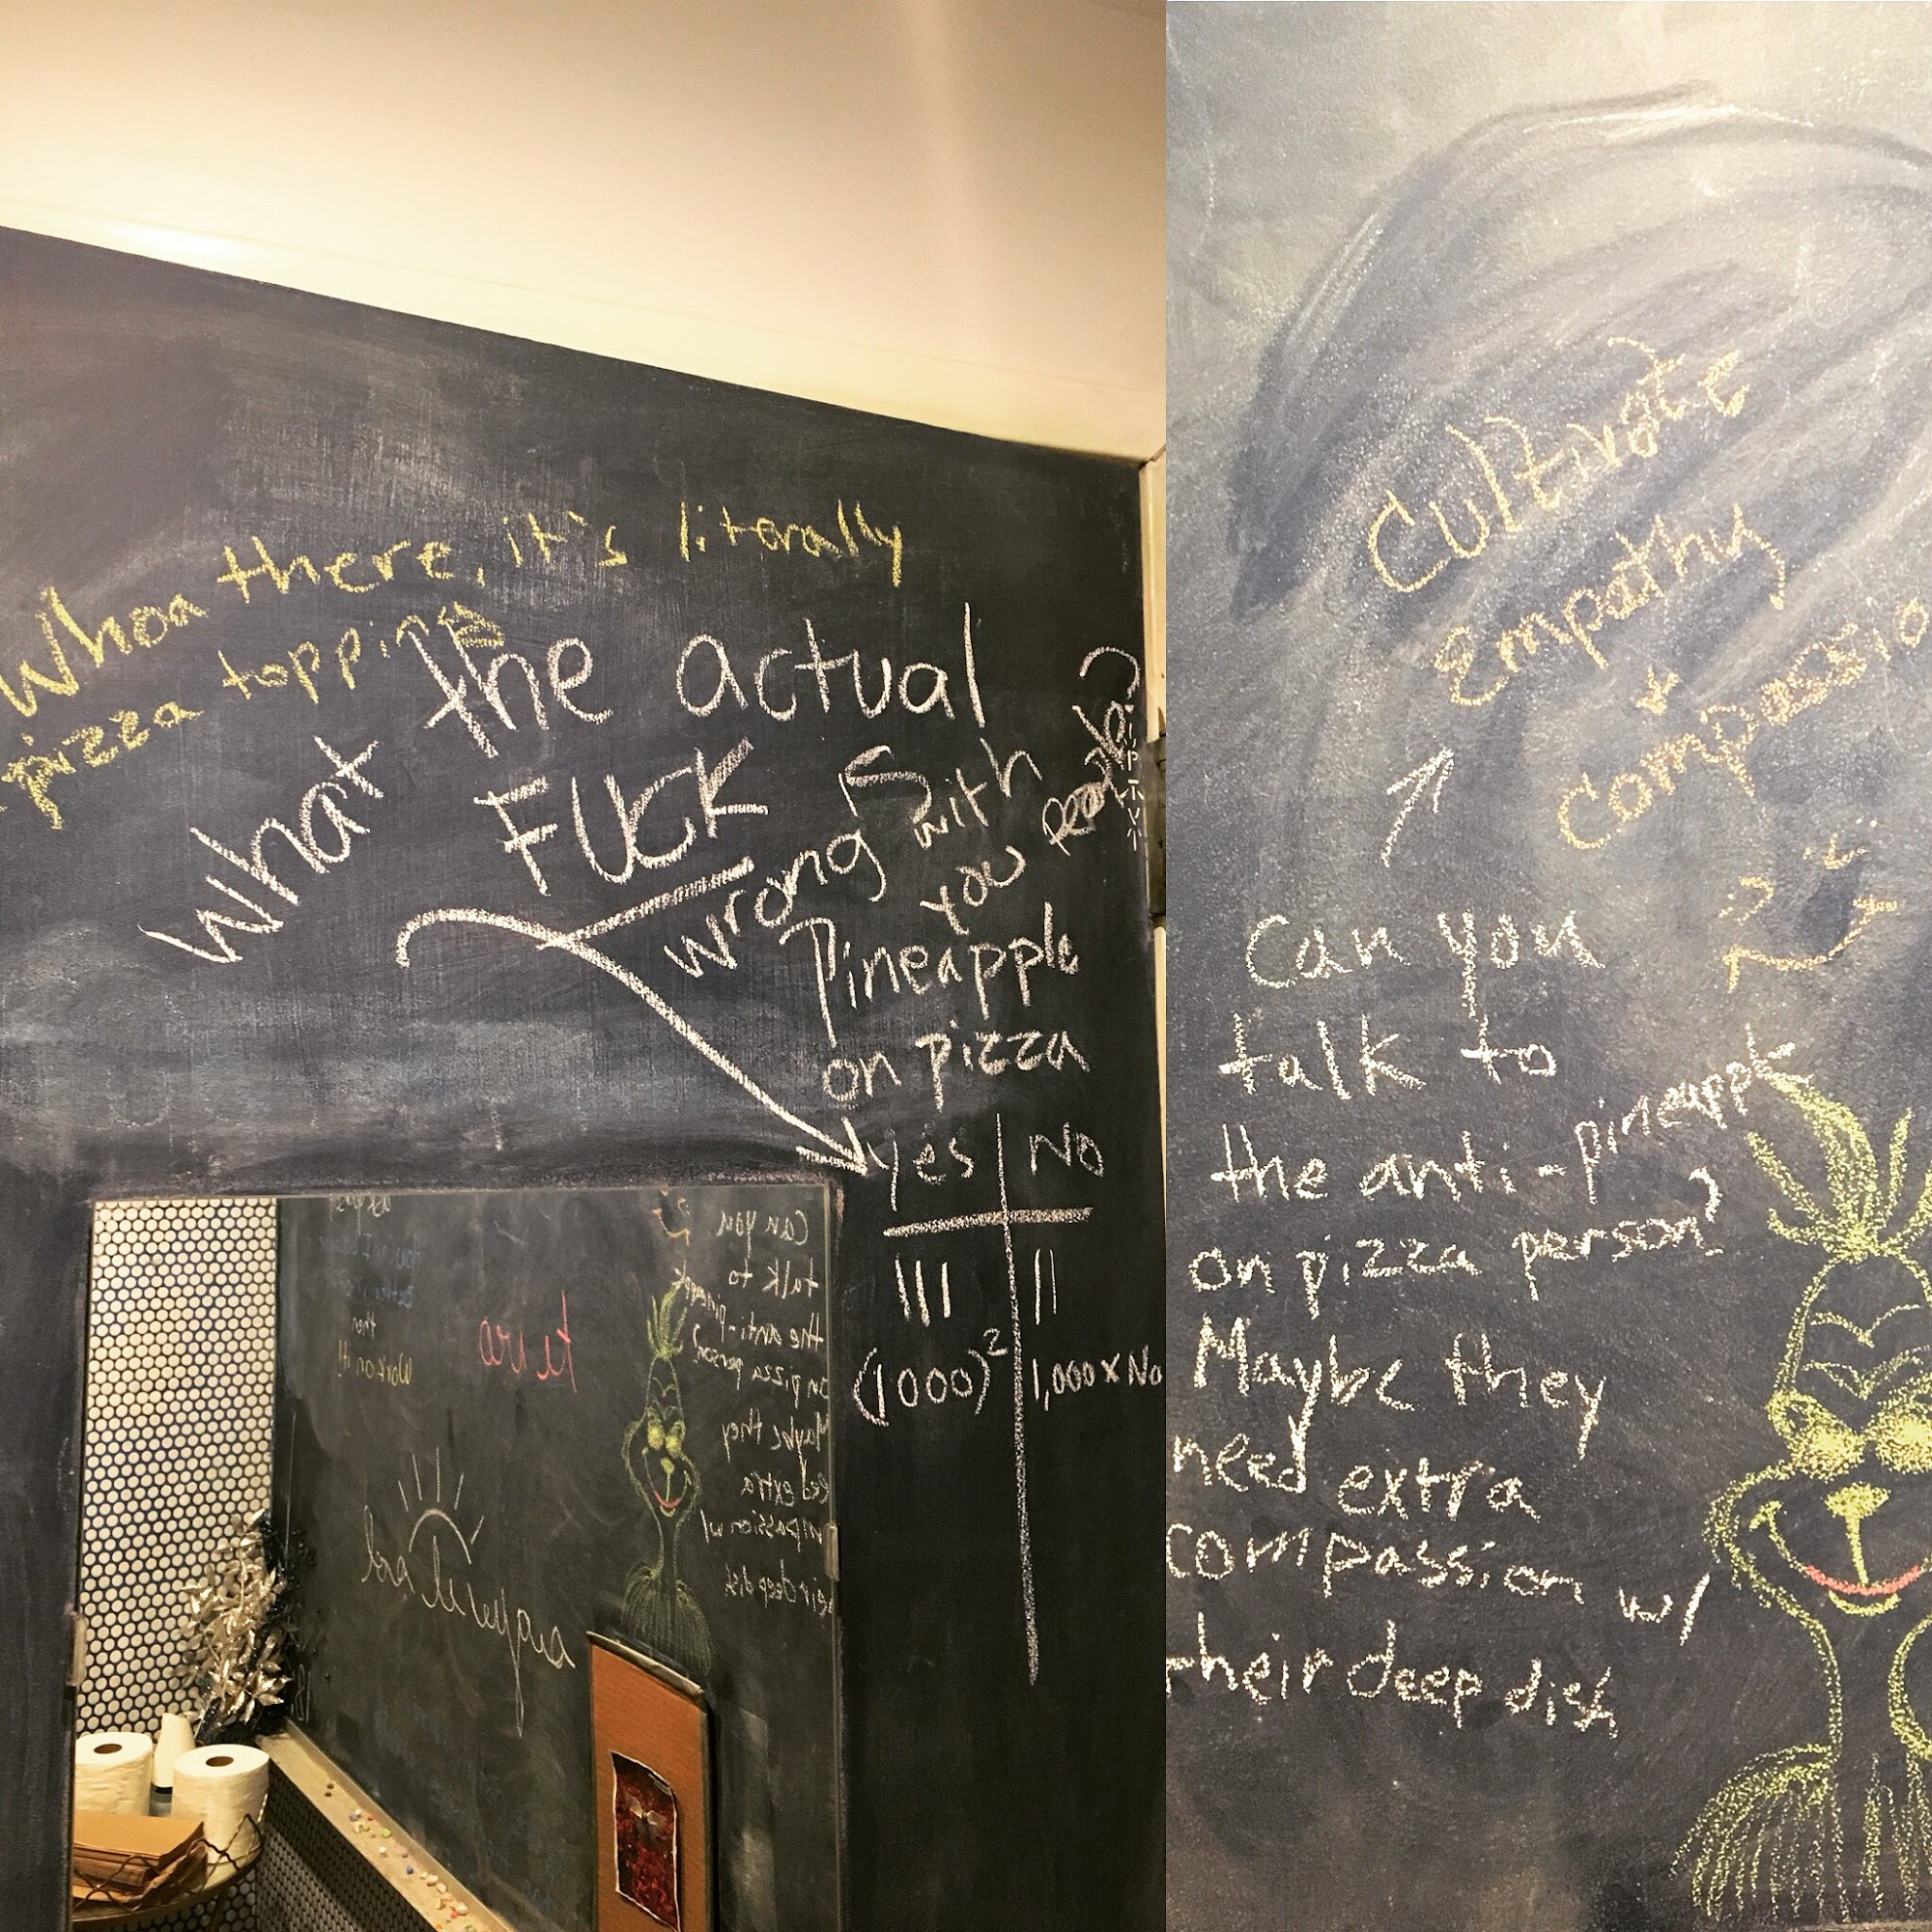 Whoa there, it's literally
pizza topping
What the actual
FUCK IS
wrong with
you people?
Pineapple
on pizza
yes No
||| ||
(1000)² 1,000 x No
Can you
talk to
the anti-pineapple
on pizza person?
Maybe they
extra
w/
deep dish
te veo
then
Work on it!
Cultivate
Empathy
&
Compassio
Can you
talk to
the anti-pineapple
on pizza person?
Maybe they
need extra
compassion w/
their deep dish